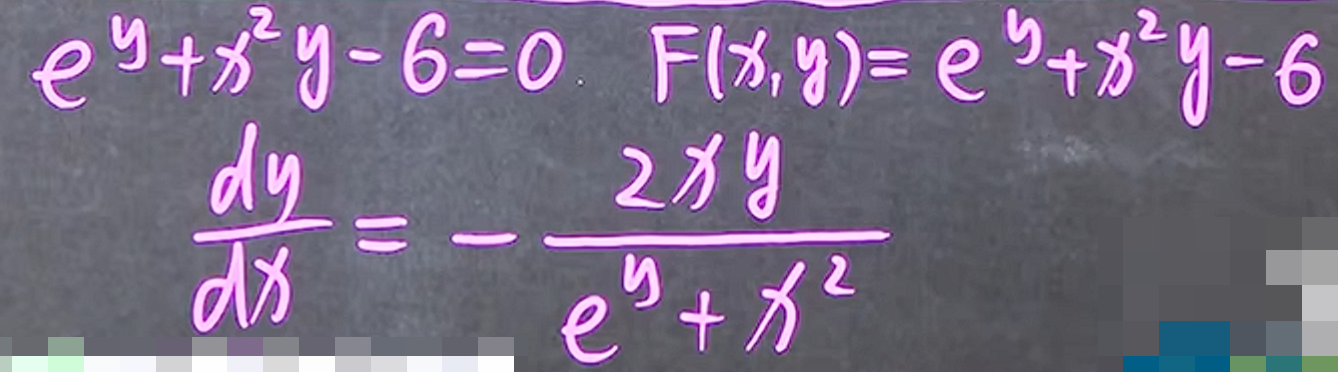 e^y + x^2 y - 6 = 0. F(x, y) = e^y + x^2 y - 6
dy/dx = - 2xy / (e^y + x^2)